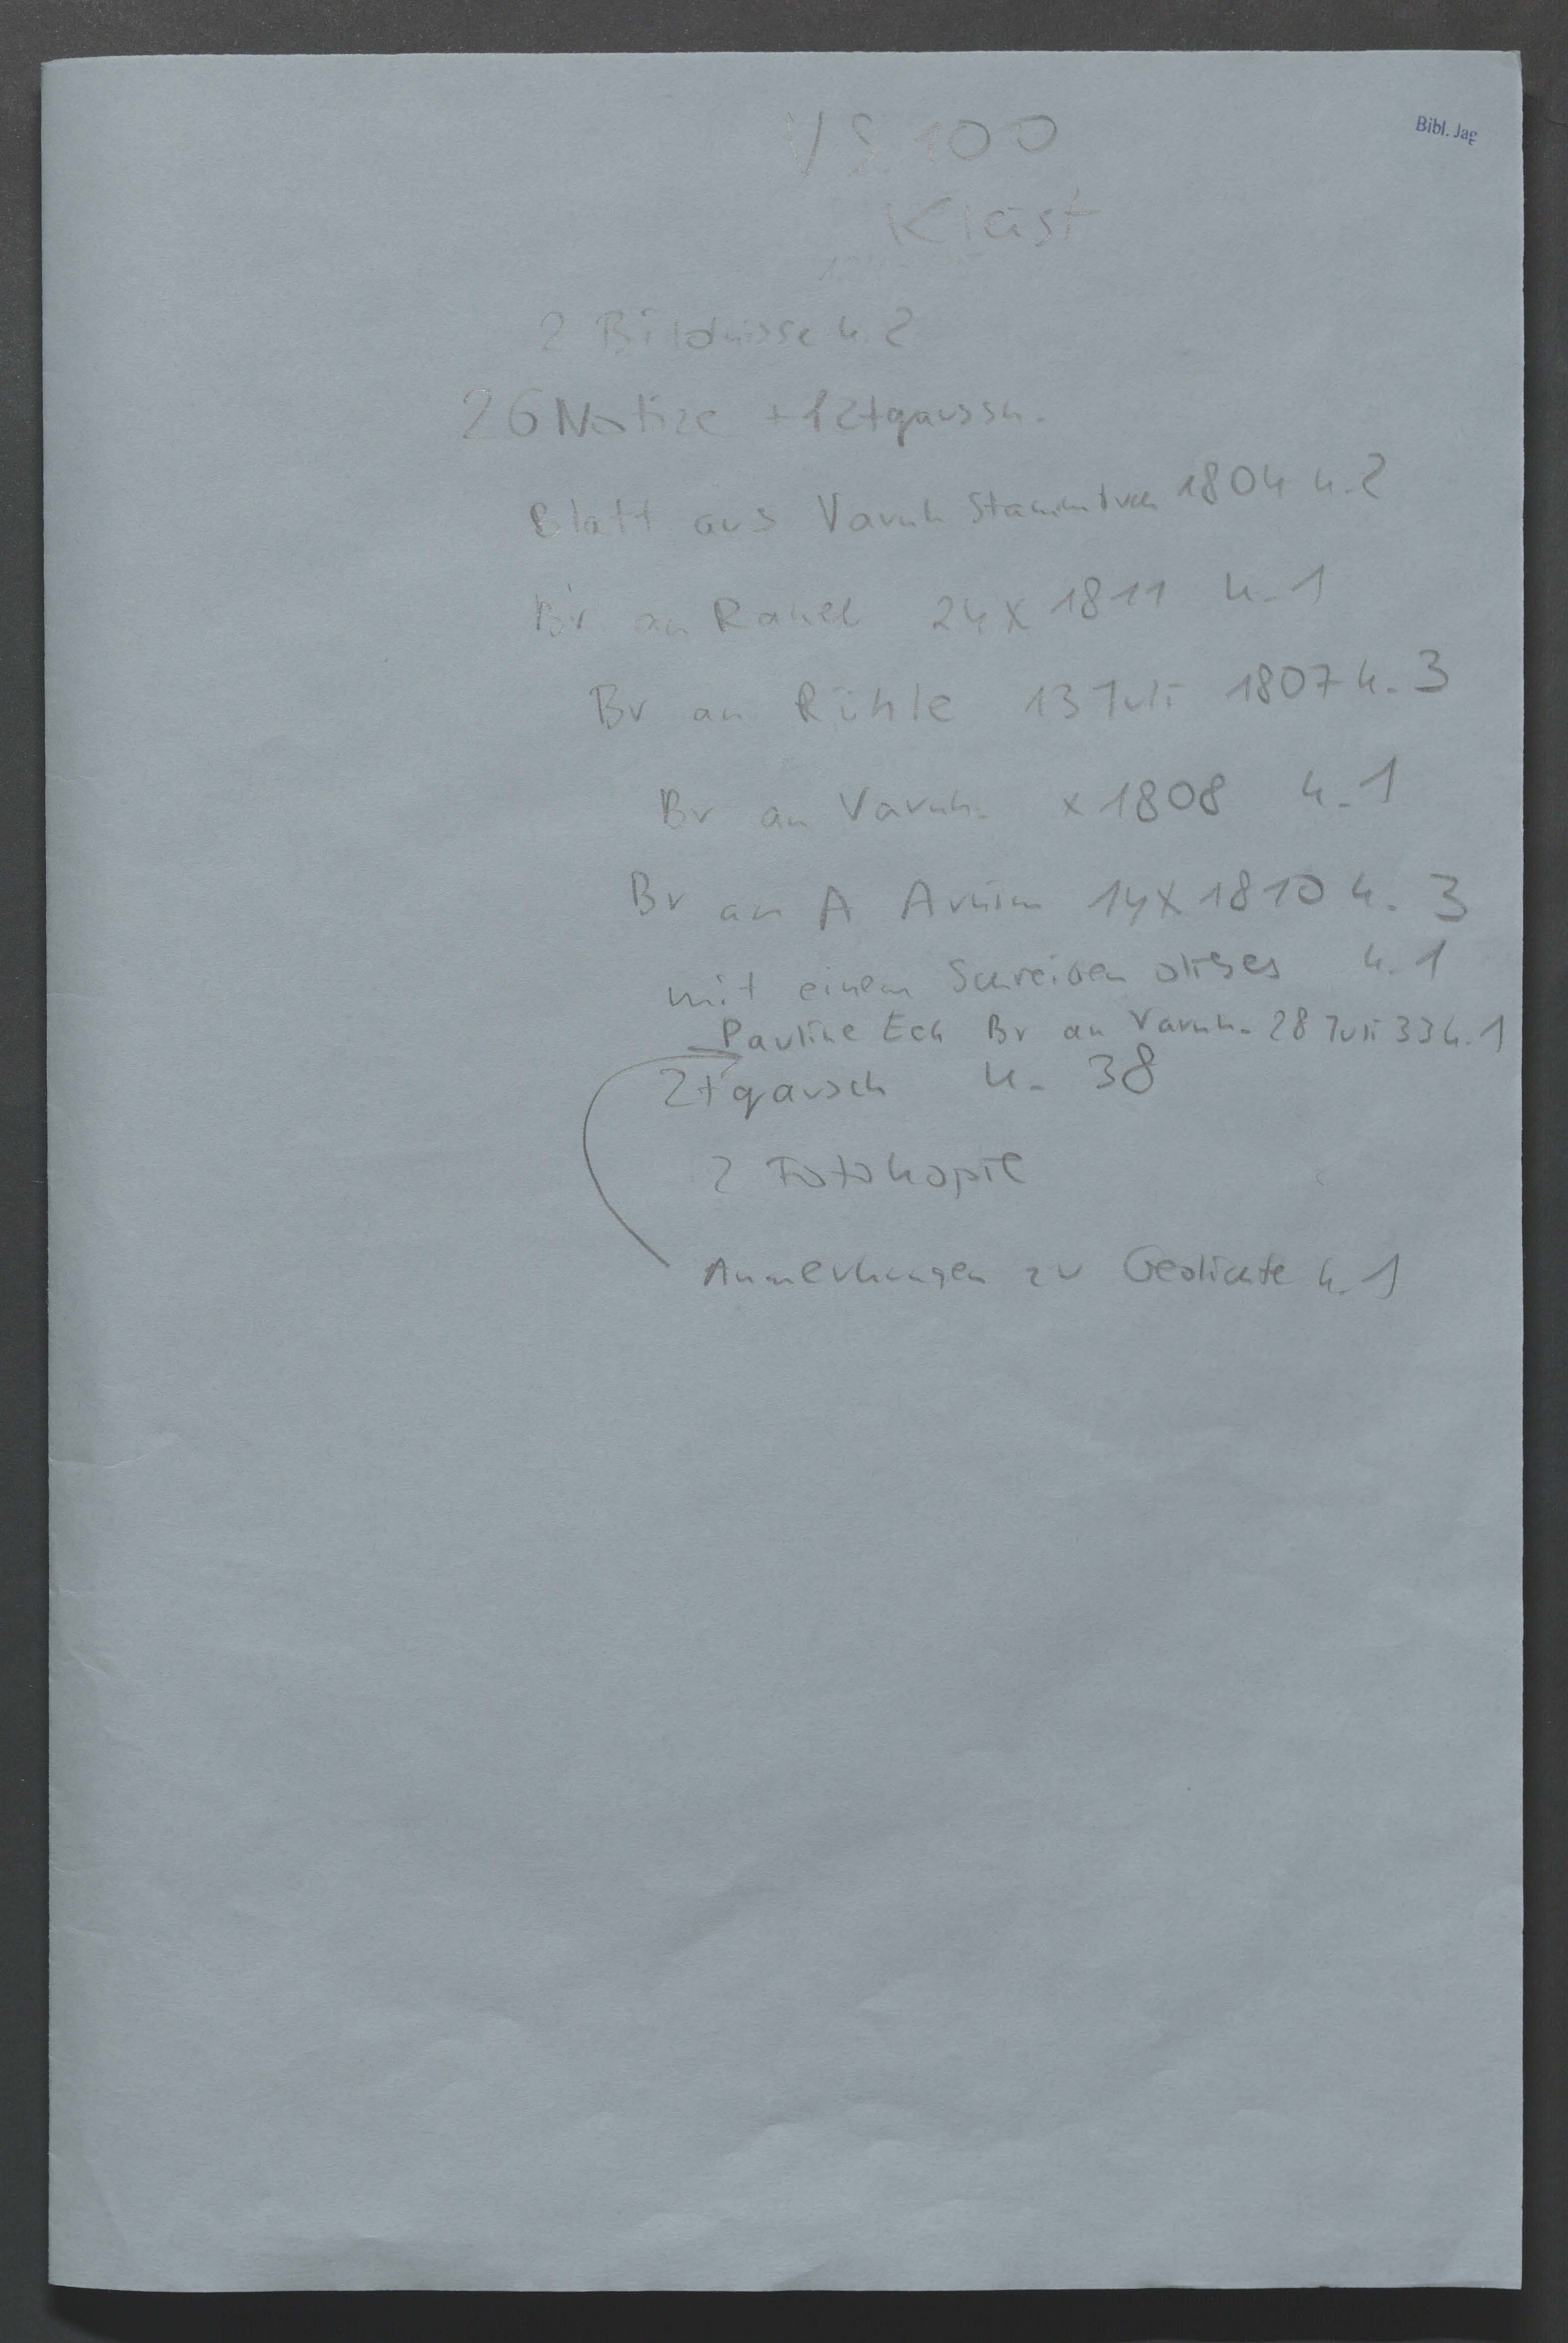 Bibl. Jag
VS. 100
Kleist
2 Bildnisse k. 2
26 Notize + 1 Ztgaussn.
Blatt aus Varnh Stammbuch 1804 k. 2
Br an Rahel 24 X 1811 k. 1
Br an Rühle 13 Juli 1807 k. 3
Br an Varnh. X 1808 k. 1
Br an A Arnim 14 X 1810 k. 3
mit einem Schreiben dieses k. 1
Pauline Ech Br an Varnh. 28 Juli 33 k. 1
Ztgausch k. 38
2 Fotokopie
Anmerkungen zu Gedichte k. 1